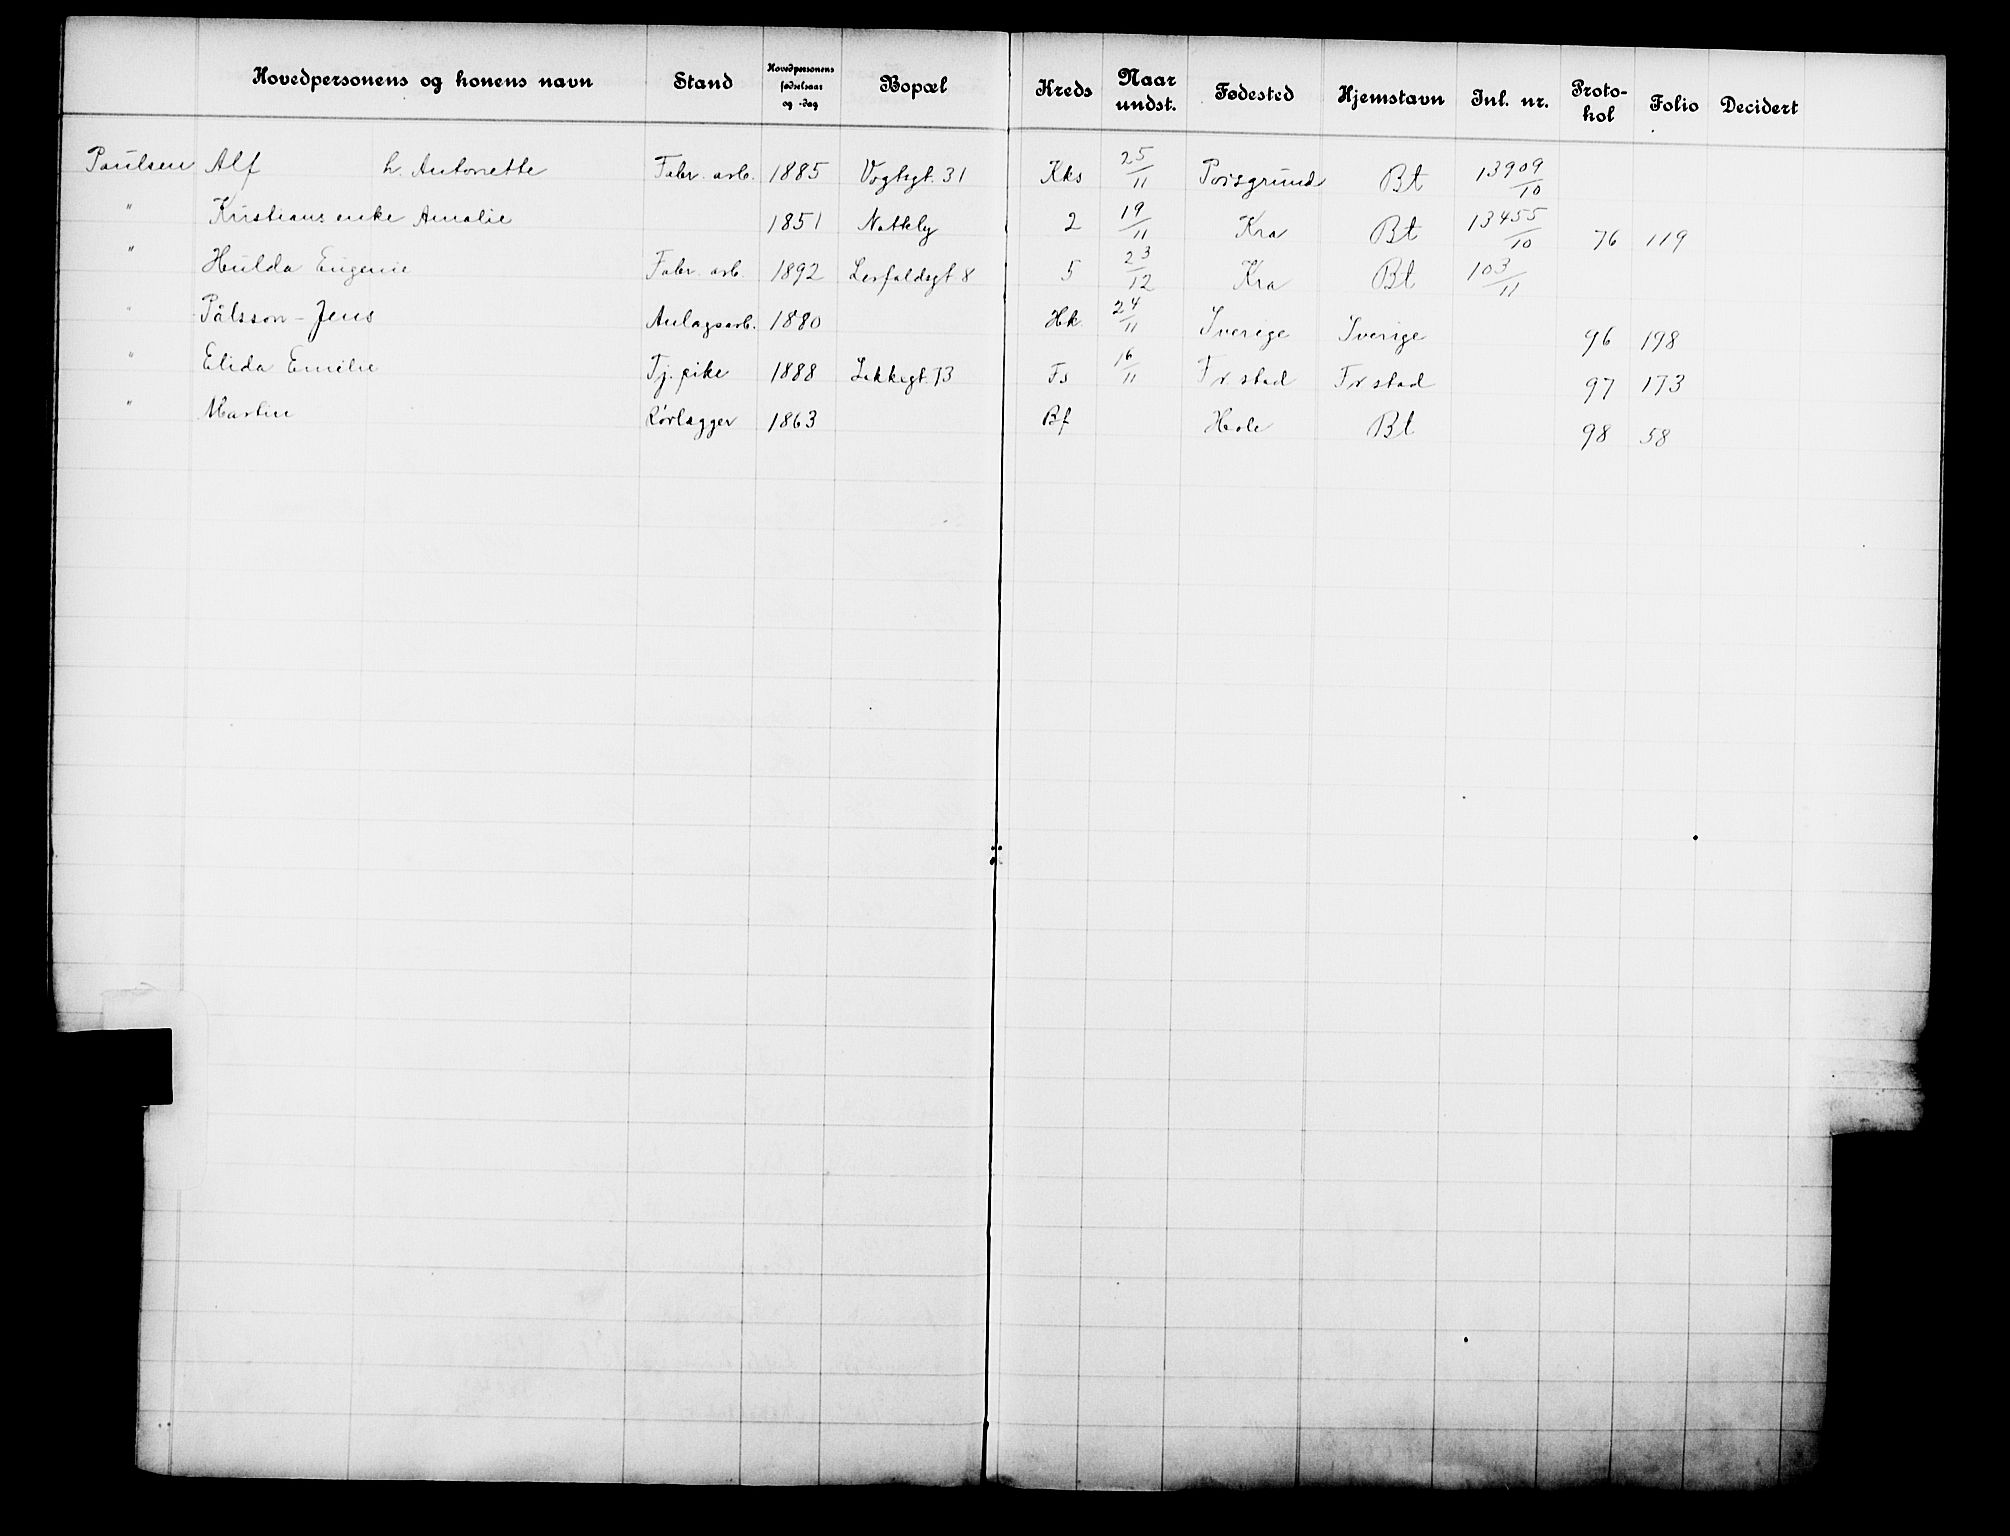 Hovedpersonens og konens navn Stand Hovedpersonens fødselsaar og -dag Bopæl Kreds Naar undst. Fødested Hjemstavn Inl. nr. Protokol Folio Decidert
Paulsen Alf h. Antonette Fabr. arb. 1885 Vogtsgt. 31 Kks 25/11 Porsgrund Bt 13909/10
" Kristians enke Amalie 1851 2 19/11 Kra Bt 13455/10 76 119
" Hulda Eugenie Fabr. arb. 1892 Herslebsgt 8 5 23/12 Kra Bt 103/11
" Pålsson - Jens Anlagsarb. 1880 Hk. 24/11 Sverige Sverige 96 198
" Elida Emilie Tj. pike 1888 Lakkegt. 73 Fs 16/11 Fr stad Fr stad 97 173
" Martin Rørlægger 1863 Bf Hole Bt 98 58